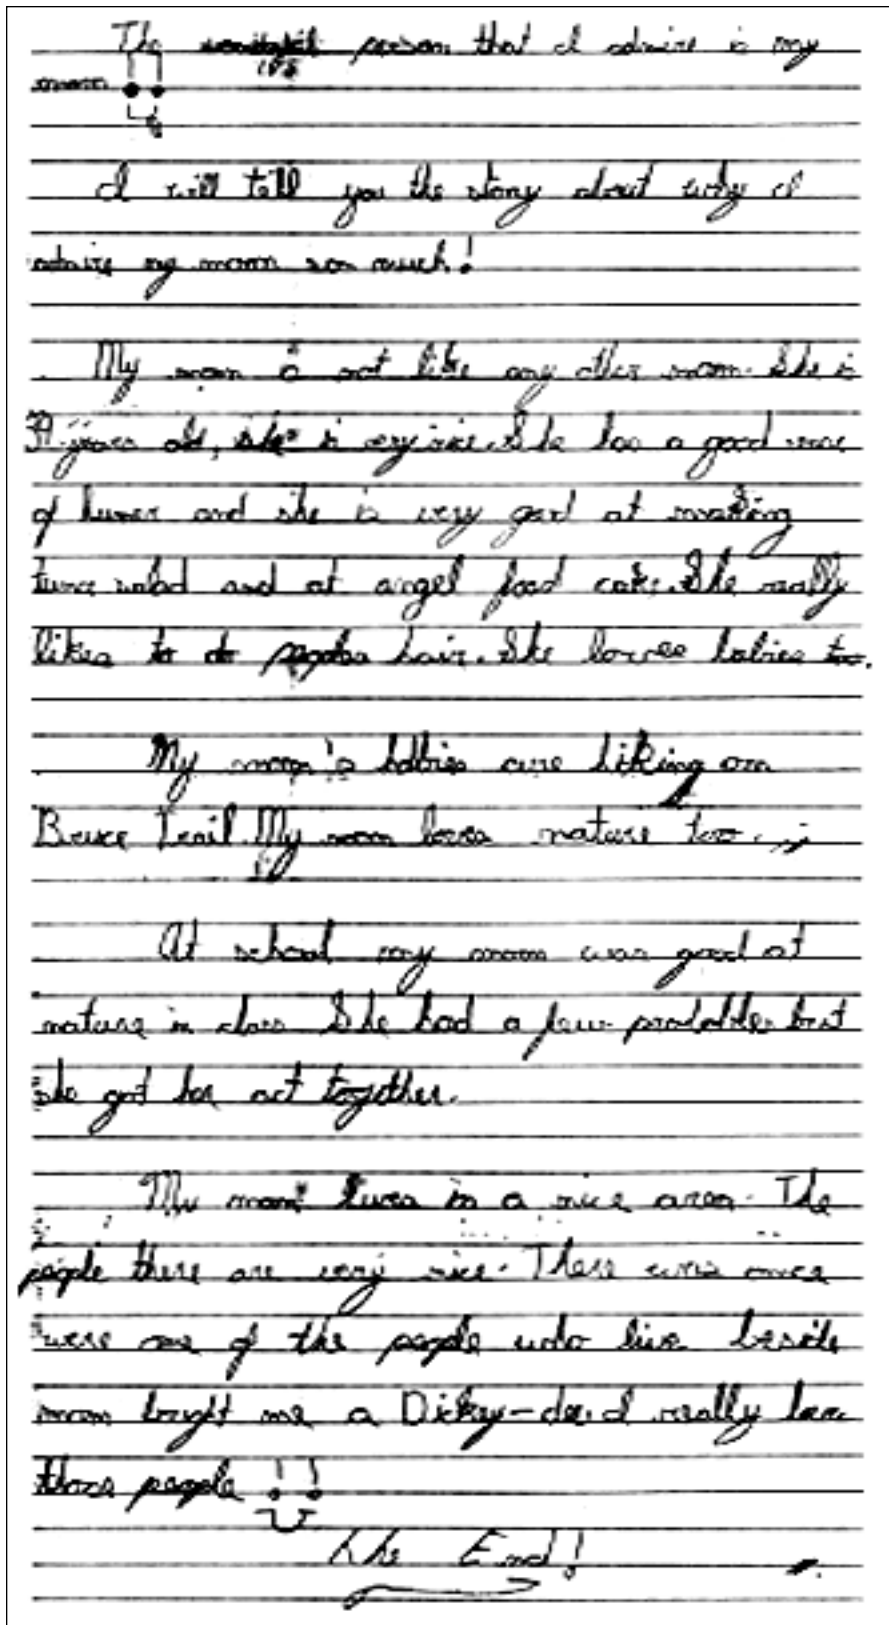 The person that I admire is my
mom !!
I will tell you the story about why I
admire my mom soo much!
My mom is not like any other mom. She is
years old, she is very nice. She has a good sence
of humer and she is very good at making
tuna salad and at angel food cake. She really
likes to do peoples hair. She loves babies too.
My mom's hobbies are hiking on
Bruce Trail. My mom loves nature too.
At school my mom was good at
nature in class. She had a few but
she got her act together.
My mom lives in a nice area. The
people there are very nice. There was once
were one of the people who live beside
mom bought me a Dickey-dee. I really love
those people !!
the End!